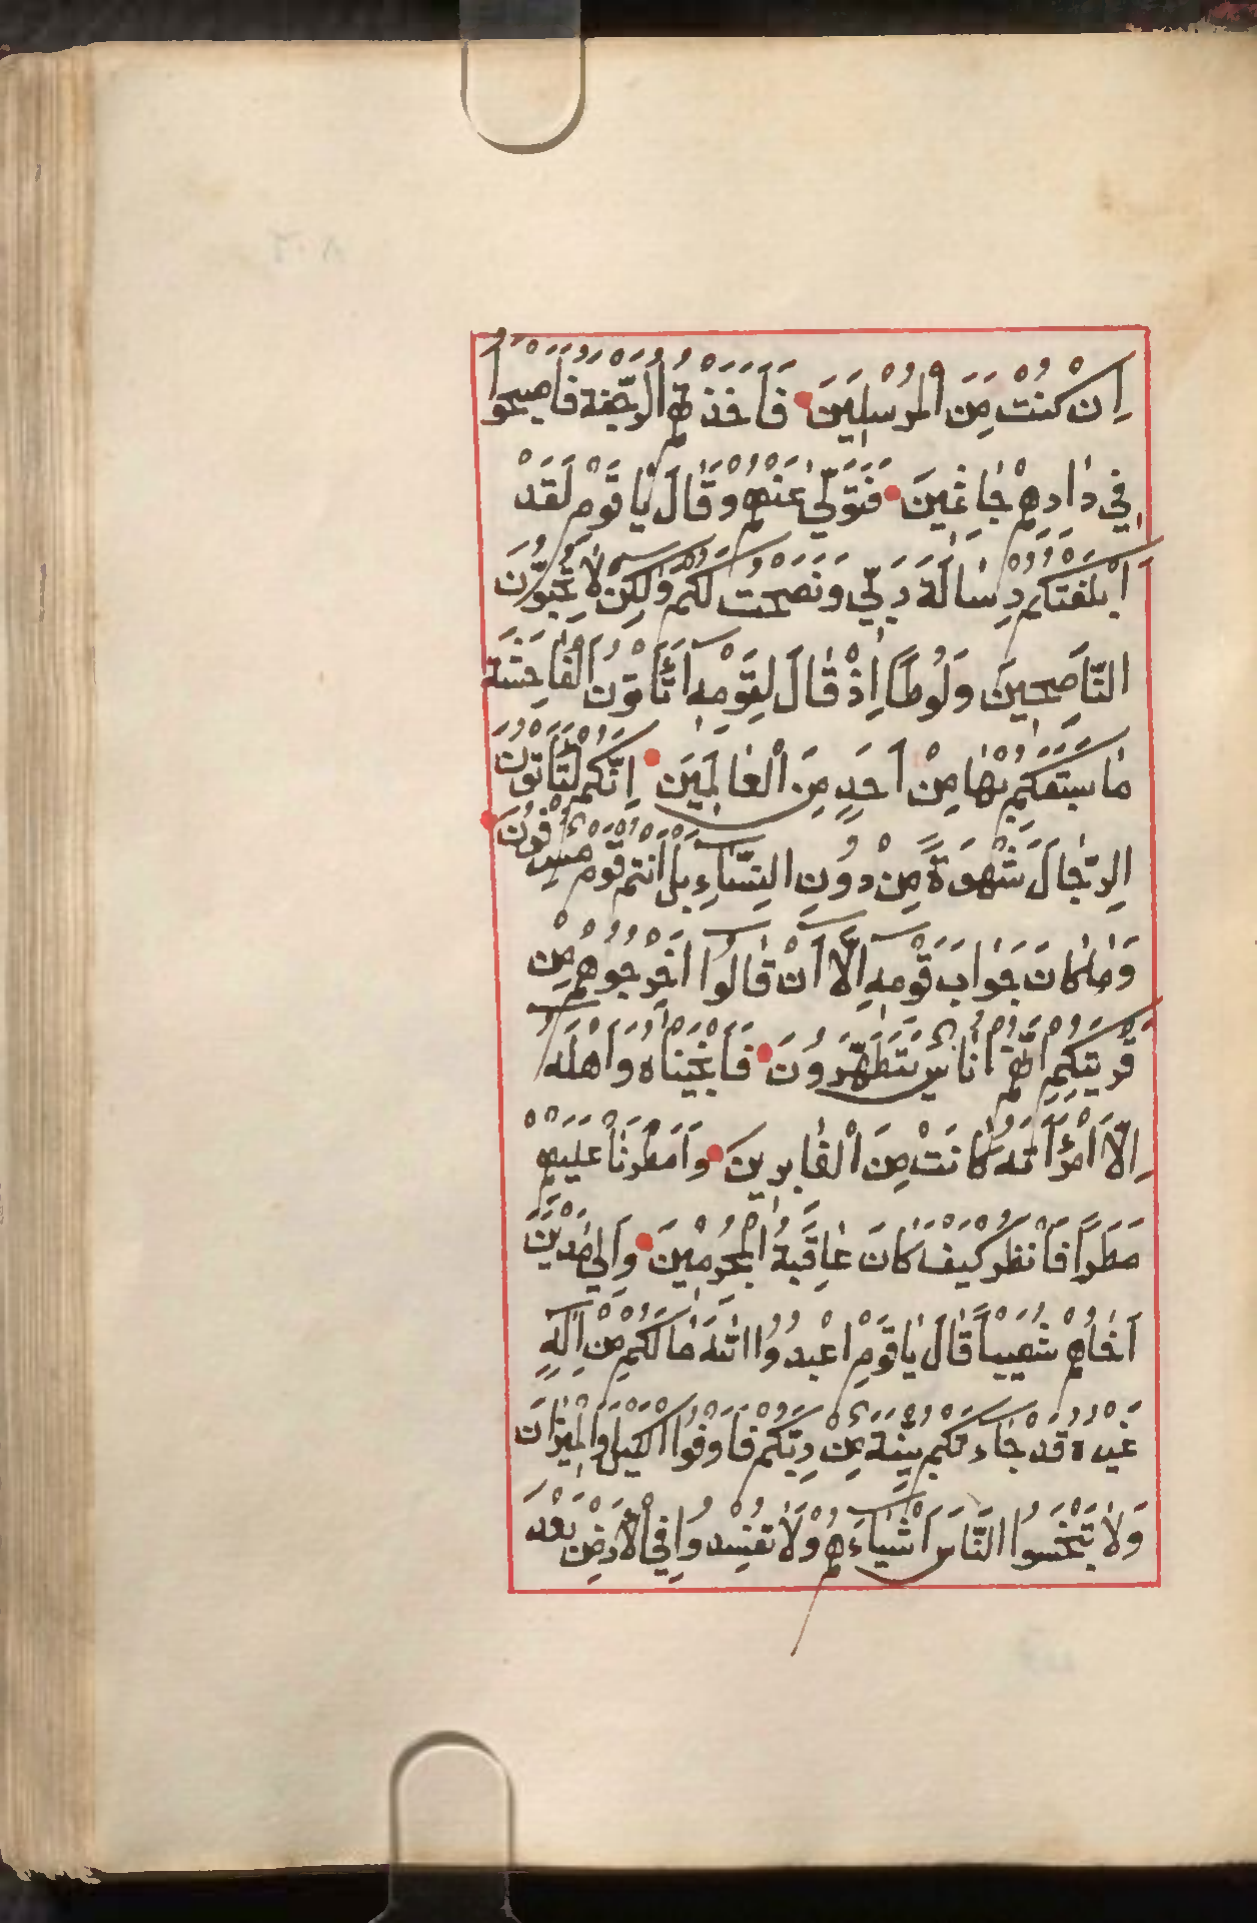 اِنْ كُنْتَ مِنَ الْمُرْسَلِينَ فَاَخَذَتْهُمُ الرَّجْفَةُ فَاَصْبَحُوا
فِي دَارِهِمْ جَاثِمِينَ فَتَوَلّٰى عَنْهُمْ وَقَالَ يَا قَوْمِ لَقَدْ
اَبْلَغْتُكُمْ رِسَالَةَ رَبِّي وَنَصَحْتُ لَكُمْ وَلٰكِنْ لَا تُحِبُّونَ
النَّاصِحِينَ وَلُوطًا اِذْ قَالَ لِقَوْمِهِ اَتَأْتُونَ الْفَاحِشَةَ
مَا سَبَقَكُمْ بِهَا مِنْ اَحَدٍ مِنَ الْعَالَمِينَ اِنَّكُمْ لَتَأْتُونَ
الرِّجَالَ شَهْوَةً مِنْ دُونِ النِّسَاءِ بَلْ اَنْتُمْ قَوْمٌ مُسْرِفُونَ
وَمَا كَانَ جَوَابَ قَوْمِهِ اِلَّا اَنْ قَالُوا اَخْرِجُوهُمْ مِنْ
قَرْيَتِكُمْ اِنَّهُمْ اُنَاسٌ يَتَطَهَّرُونَ فَاَنْجَيْنَاهُ وَاَهْلَهُ
اِلَّا امْرَأَتَهُ كَانَتْ مِنَ الْغَابِرِينَ وَاَمْطَرْنَا عَلَيْهِمْ
مَطَرًا فَانْظُرْ كَيْفَ كَانَ عَاقِبَةُ الْمُجْرِمِينَ وَاِلٰى مَدْيَنَ
اَخَاهُمْ شُعَيْبًا قَالَ يَا قَوْمِ اعْبُدُوا اللّٰهَ مَا لَكُمْ مِنْ اِلٰهٍ
غَيْرُهُ قَدْ جَاءَتْكُمْ بَيِّنَةٌ مِنْ رَبِّكُمْ فَاَوْفُوا الْكَيْلَ وَالْمِيزَانَ
وَلَا تَبْخَسُوا النَّاسَ اَشْيَاءَهُمْ وَلَا تُفْسِدُوا فِي الْاَرْضِ بَعْدَ